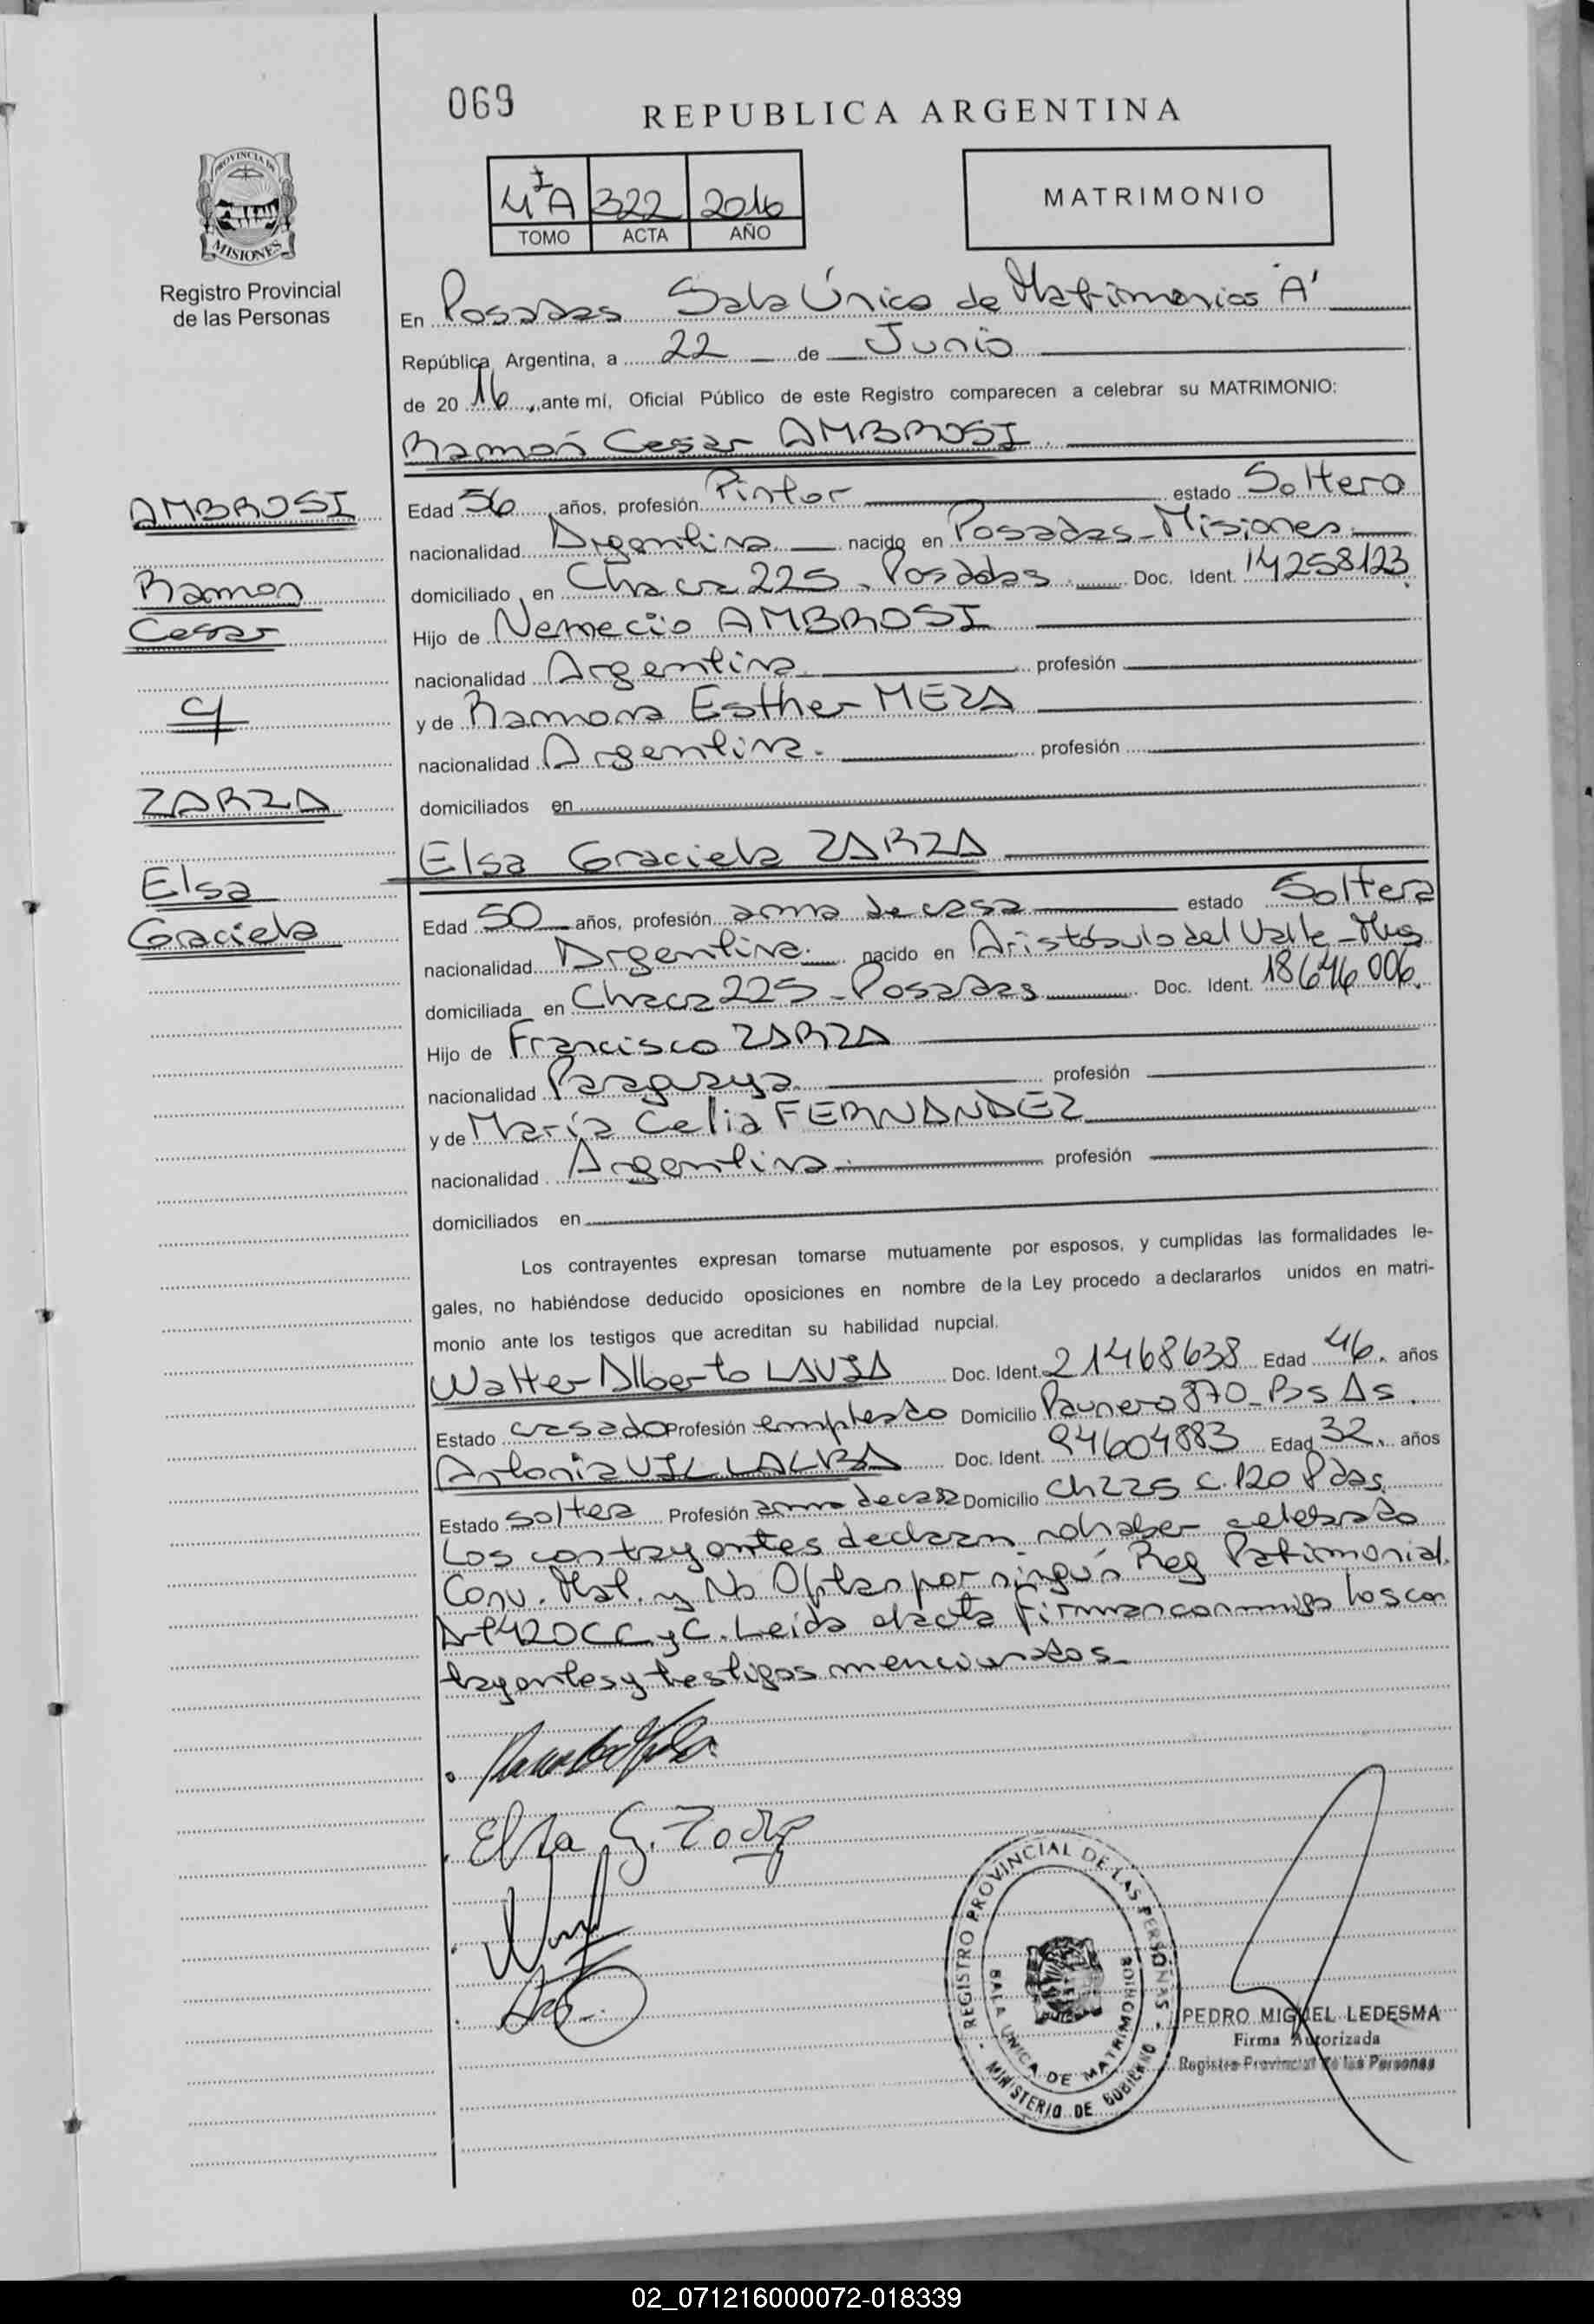 069
REPUBLICA ARGENTINA
I
4 A 322 2016
TOMO ACTA AÑO
MATRIMONIO
PROVINCIA DE
MISIONES
Registro Provincial
de las Personas
En Posadas Sala Única de Matrimonios "A"
República Argentina, a 22 de Junio
de 20 16, ante mí, Oficial Público de este Registro comparecen a celebrar su MATRIMONIO:
Ramón Cesar AMBROSI.
AMBROSI
Ramon
Cesar
c/
ZARZA
Elsa
Graciela
Edad 56 años, profesión Pintor estado Soltero
nacionalidad Argentina nacido en Posadas - Misiones.
domiciliado en Chacra 225 - Posadas. Doc. Ident. 14258123.
Hijo de Nemecio AMBROSI
nacionalidad Argentina profesión
y de Ramona Esther MEZA
nacionalidad Argentina. profesión
domiciliados en
Elsa Graciela ZARZA
Edad 50 años, profesión ama de casa estado Soltera
nacionalidad Argentina. nacido en Aristóbulo del Valle - Mnes
domiciliada en Chacra 225 - Posadas Doc. Ident. 18676006.
Hijo de Francisco ZARZA
nacionalidad Paraguaya profesión
y de María Celia FERNANDEZ
nacionalidad Argentina. profesión
domiciliados en
Los contrayentes expresan tomarse mutuamente por esposos, y cumplidas las formalidades le-
gales, no habiéndose deducido oposiciones en nombre de la Ley procedo a declararlos unidos en matri-
monio ante los testigos que acreditan su habilidad nupcial.
Walter Alberto Doc. Ident. 21468638 Edad 46. años
Estado casado Profesión empleado Domicilio Paunero 870 - Bs As.
Antonia VILLALBA Doc. Ident. 94604883 Edad 32. años
Estado soltera Profesión ama de casa Domicilio Ch 225 C. 120 Pdas.
Los contrayentes declaran no haber celebrado
Conv. Mat. y No Optan por ningún Reg Patrimonial.
Art 420 CC y C. Leida el acta firman conmigo los con
trayentes y testigos mencionados.
Elsa G. Zarza
REGISTRO PROVINCIAL DE LAS PERSONAS
SALA UNICA DE MATRIMONIOS
MINISTERIO DE GOBIERNO
PEDRO MIGUEL LEDESMA
Firma Autorizada
Registro Provincial de las Personas
02_071216000072-018339